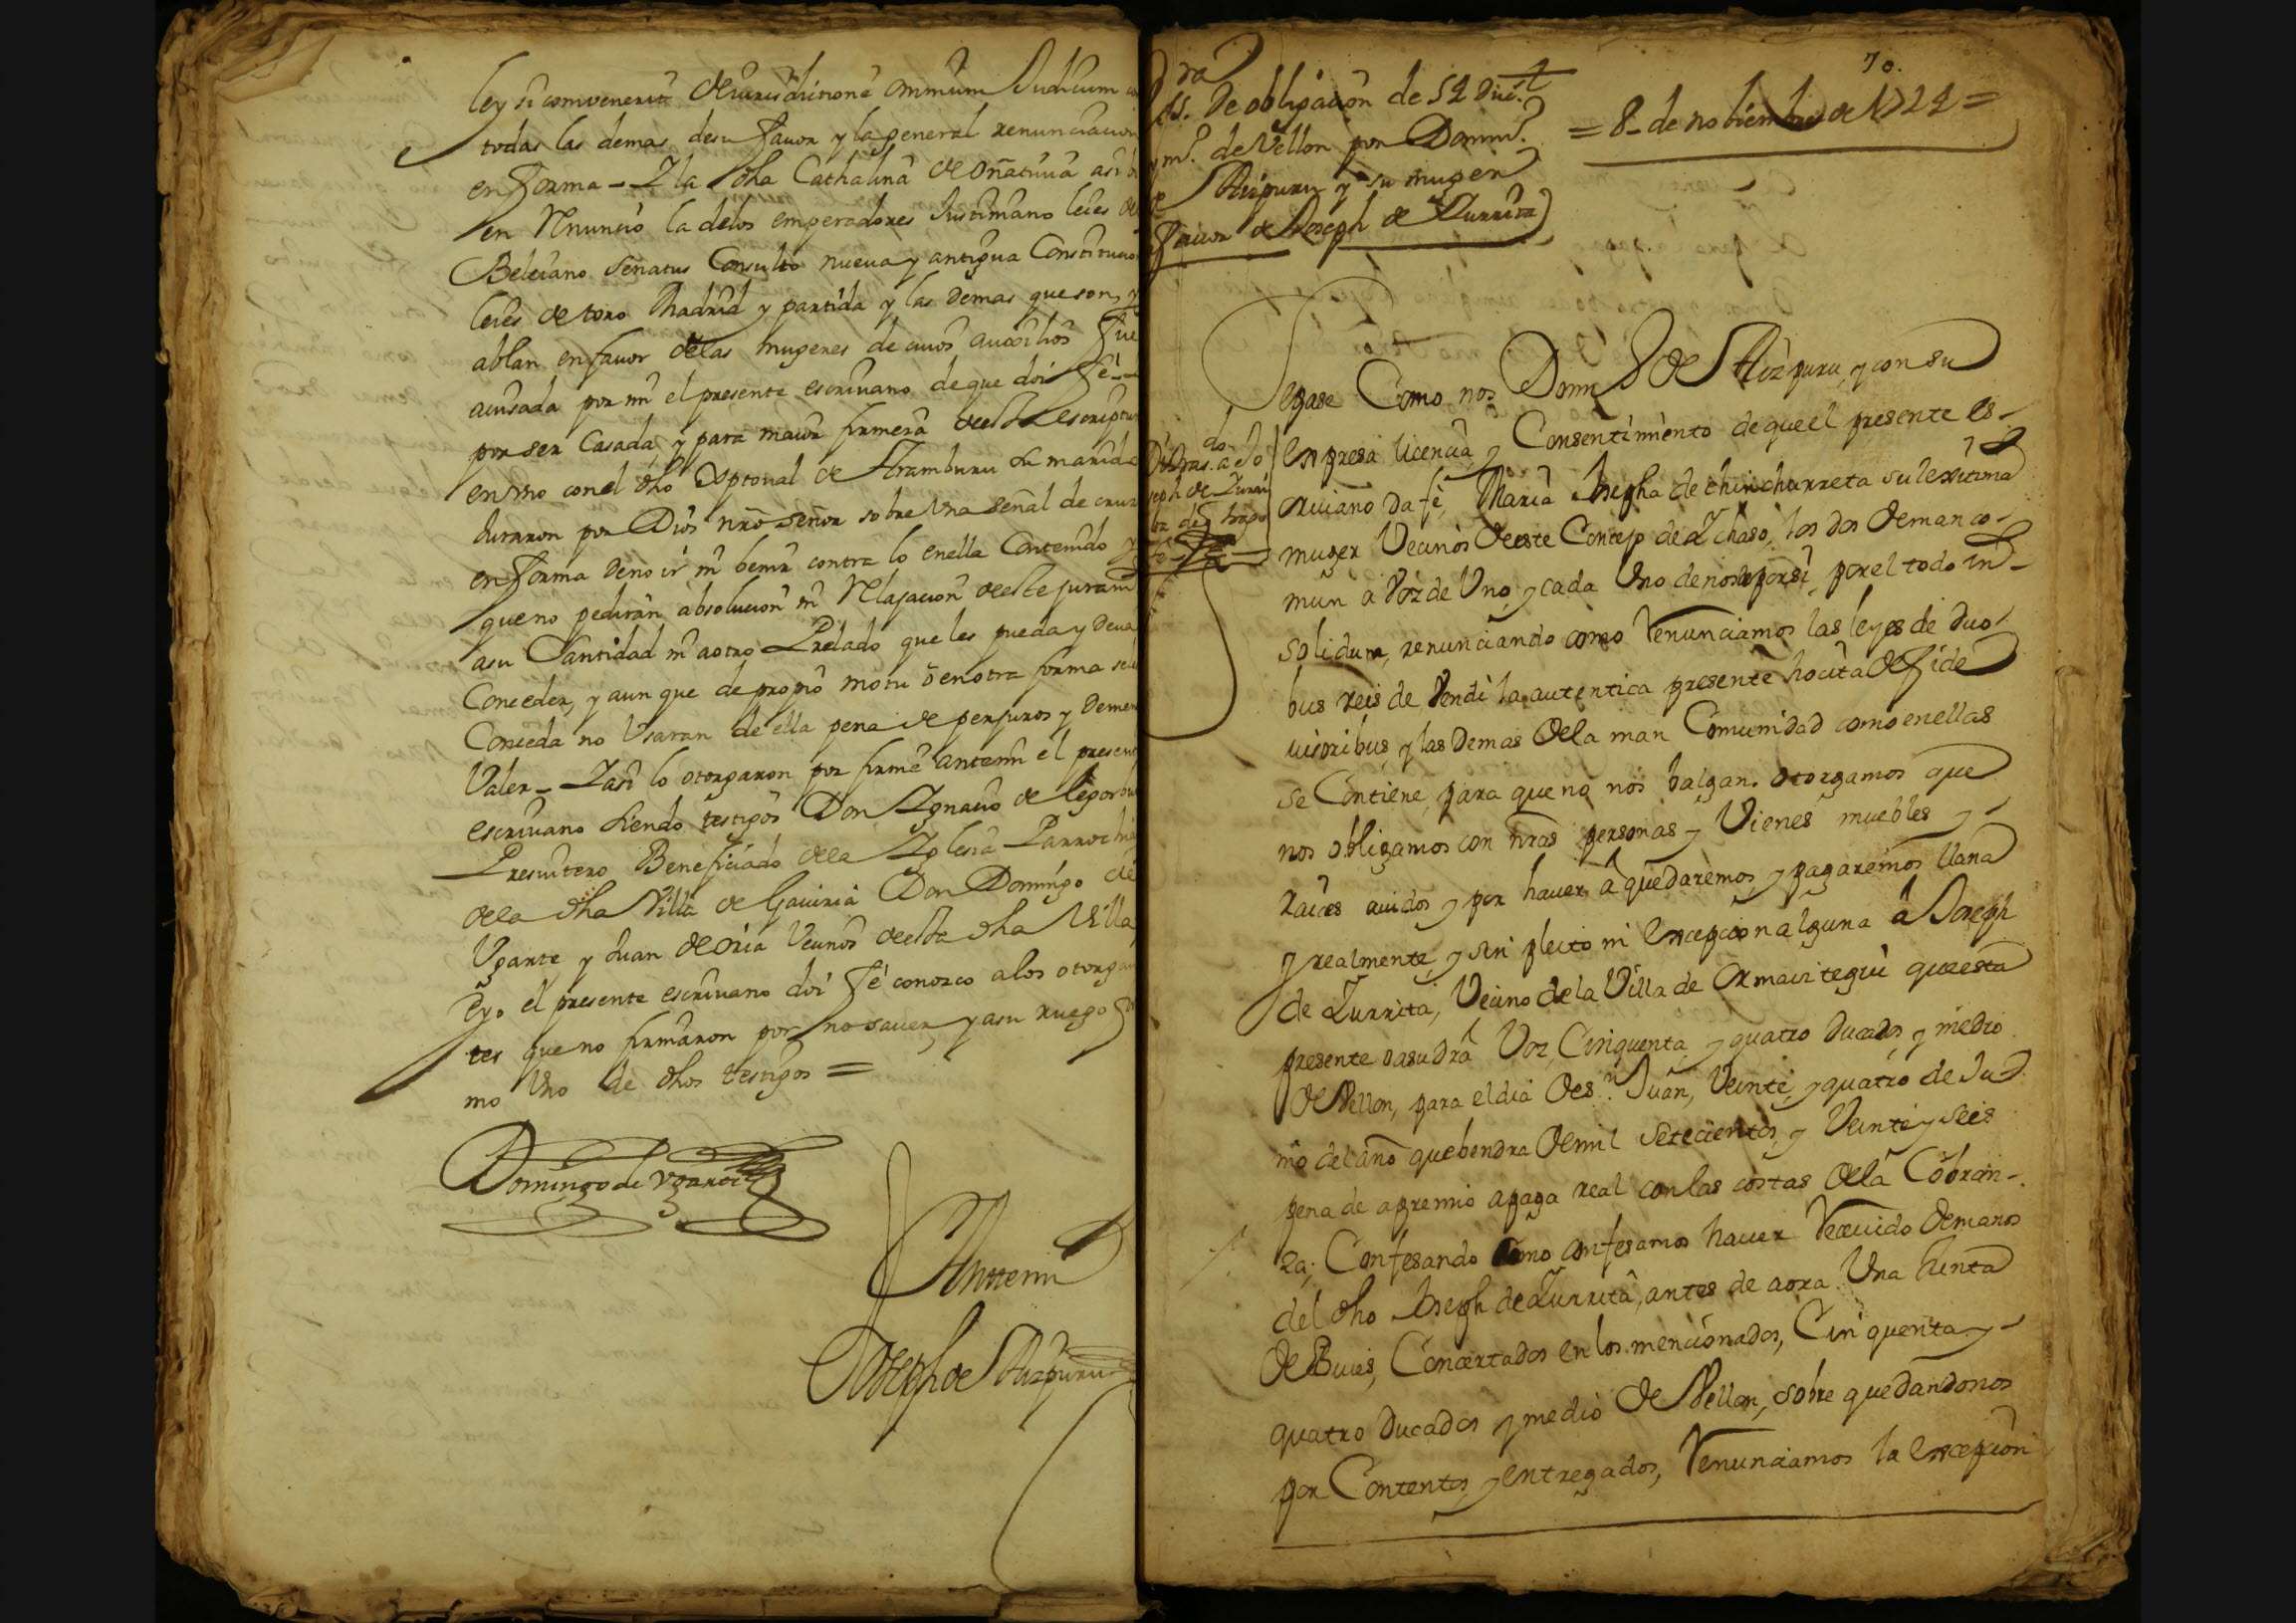 ley si convenerit de iurisdicione omnium Judicum
todas las demas de su favor y la general renunciacion
en forma – Y la dha Cathalina de oñativia asi
en Renuncio la delos emperadores Justiniano leies de
Beleiano Senatus Consulto nueva y antigua Constitucio
leies de toro Madrid y partida y las demas que son, y
ablan en favor delas mugeres de cuios auxilios Fue
auisada por mi el presente escriuano de que doi Fé –
por ser Casada, y para maior firmeza de esta escriptur
en vno con el dho Xptoual de Aramburu su marido
Juraron por Dios nro señor sobre Vna señal de cruz
en forma de no ir ni benir contra lo en ella Contenido y
que no pediran absolucion ni Relajacion de este juram
a su Santidad ni a otro Prelado que les pueda y deva
Conceder, y aun que de propio motu ò en otra forma se le
Conceda no Vsaran de ella pena de perjuros y de men
Valer – Y asi lo otorgaron por firme ante mi el present
escriuano siendo testigos Don Ygnacio de legorbu
Presuitero Beneficiado de la Yglesia Parrochia
de la dha Villa de Gauiria Don Domingo de
Vgarte y Juan de oria Vecinos de esta dha Villa
E yo el presente escriuano doi Fé conozco a los otorgan
tes que no firmaron por no sauer, y a su ruego fir
mo Vno de dhos testigos =
Domingo de Vgarte
Ante mi
Joseph de Aizpuru
70.
de obligacion de 54 duc.
y mº. de Vellon por Domº.
de Aizpuru y su muger
favor de Joseph de Zurrita
= 8 – de nobiembre de 1724 =
Segase Como nos Domº de Aizpuru, y con su
Expresa licencia y Consentimiento de que el presente es-
criuiano da fé, Maria Josepha de chinchurreta su lexitima
muger Vecinos de este Concejo de Ychaso, los dos de manco-
mun à voz de Uno, y cada Uno de nos de por si, por el todo in-
solidum, renunciando como Renunciamos las leyes de duo-
bus reis de vendi la autentica presente hocita de fide
iusoribus, y las demas de la man Comunidad como en ellas
se Contiene, para que no nos balgan. otorgamos que
nos obligamos con nras personas y Vienes muebles y
raices auidos y por hauer, à que daremos, y pagaremos llana
y realmente, y sin pleito ni Excepcion alguna â Joseph
de Zurrita, Vecino de la Villa de Ormaiztegui que esta
presente o a su dra Voz, Cinquenta y quatro ducados y medio
de Vellon, para el dia de Sn. Juan, Veinte, y quatro de Ju
nio del año que bendra de mil setecientos, y Veinte y seis
pena de apremio a paga real con las costas de la Cobran-
za; Confesando Como confesamos hauer Receuido de manos
del dho Joseph de Zurrita, antes de aora Una Junta
de Bueies, Concertados en los mencionados, Cinquenta y
quatro Ducados y medio de Vellon, sobre que dandonos
por Contentos, y entregados, Renunciamos la Excepcion